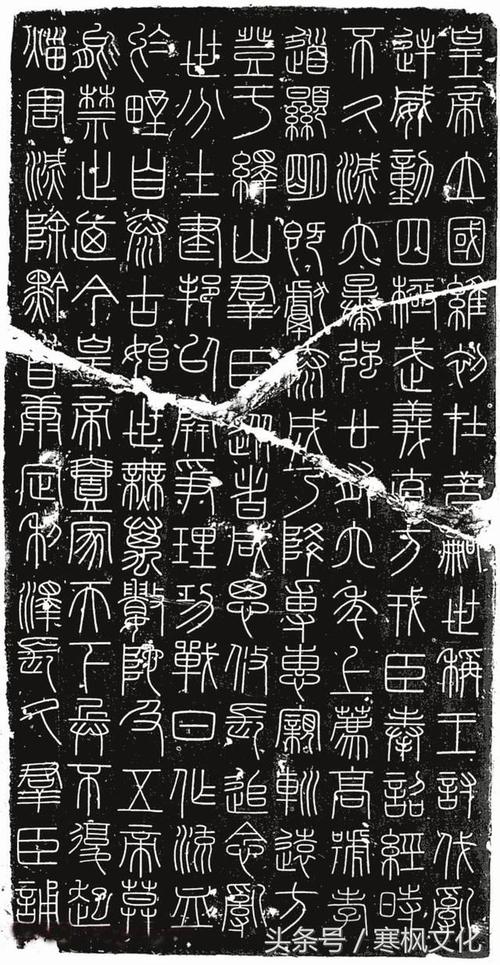 皇帝立國維初在昔嗣世稱王討伐亂
逆威動四極武義直方戎臣奉詔經時
不久滅六暴強廿有六年上薦高號孝
道顯明既獻泰成乃降專惠親䡅遠方
登于繹山羣臣從者咸思攸長追念亂
世分土建邦以開爭理功戰日作流血
於野自泰古始世無萬數陀及五帝莫
能禁止廼今皇帝壹家天下兵不復起
災害滅除黔首康定利澤長久羣臣誦
头条号 / 寒枫文化